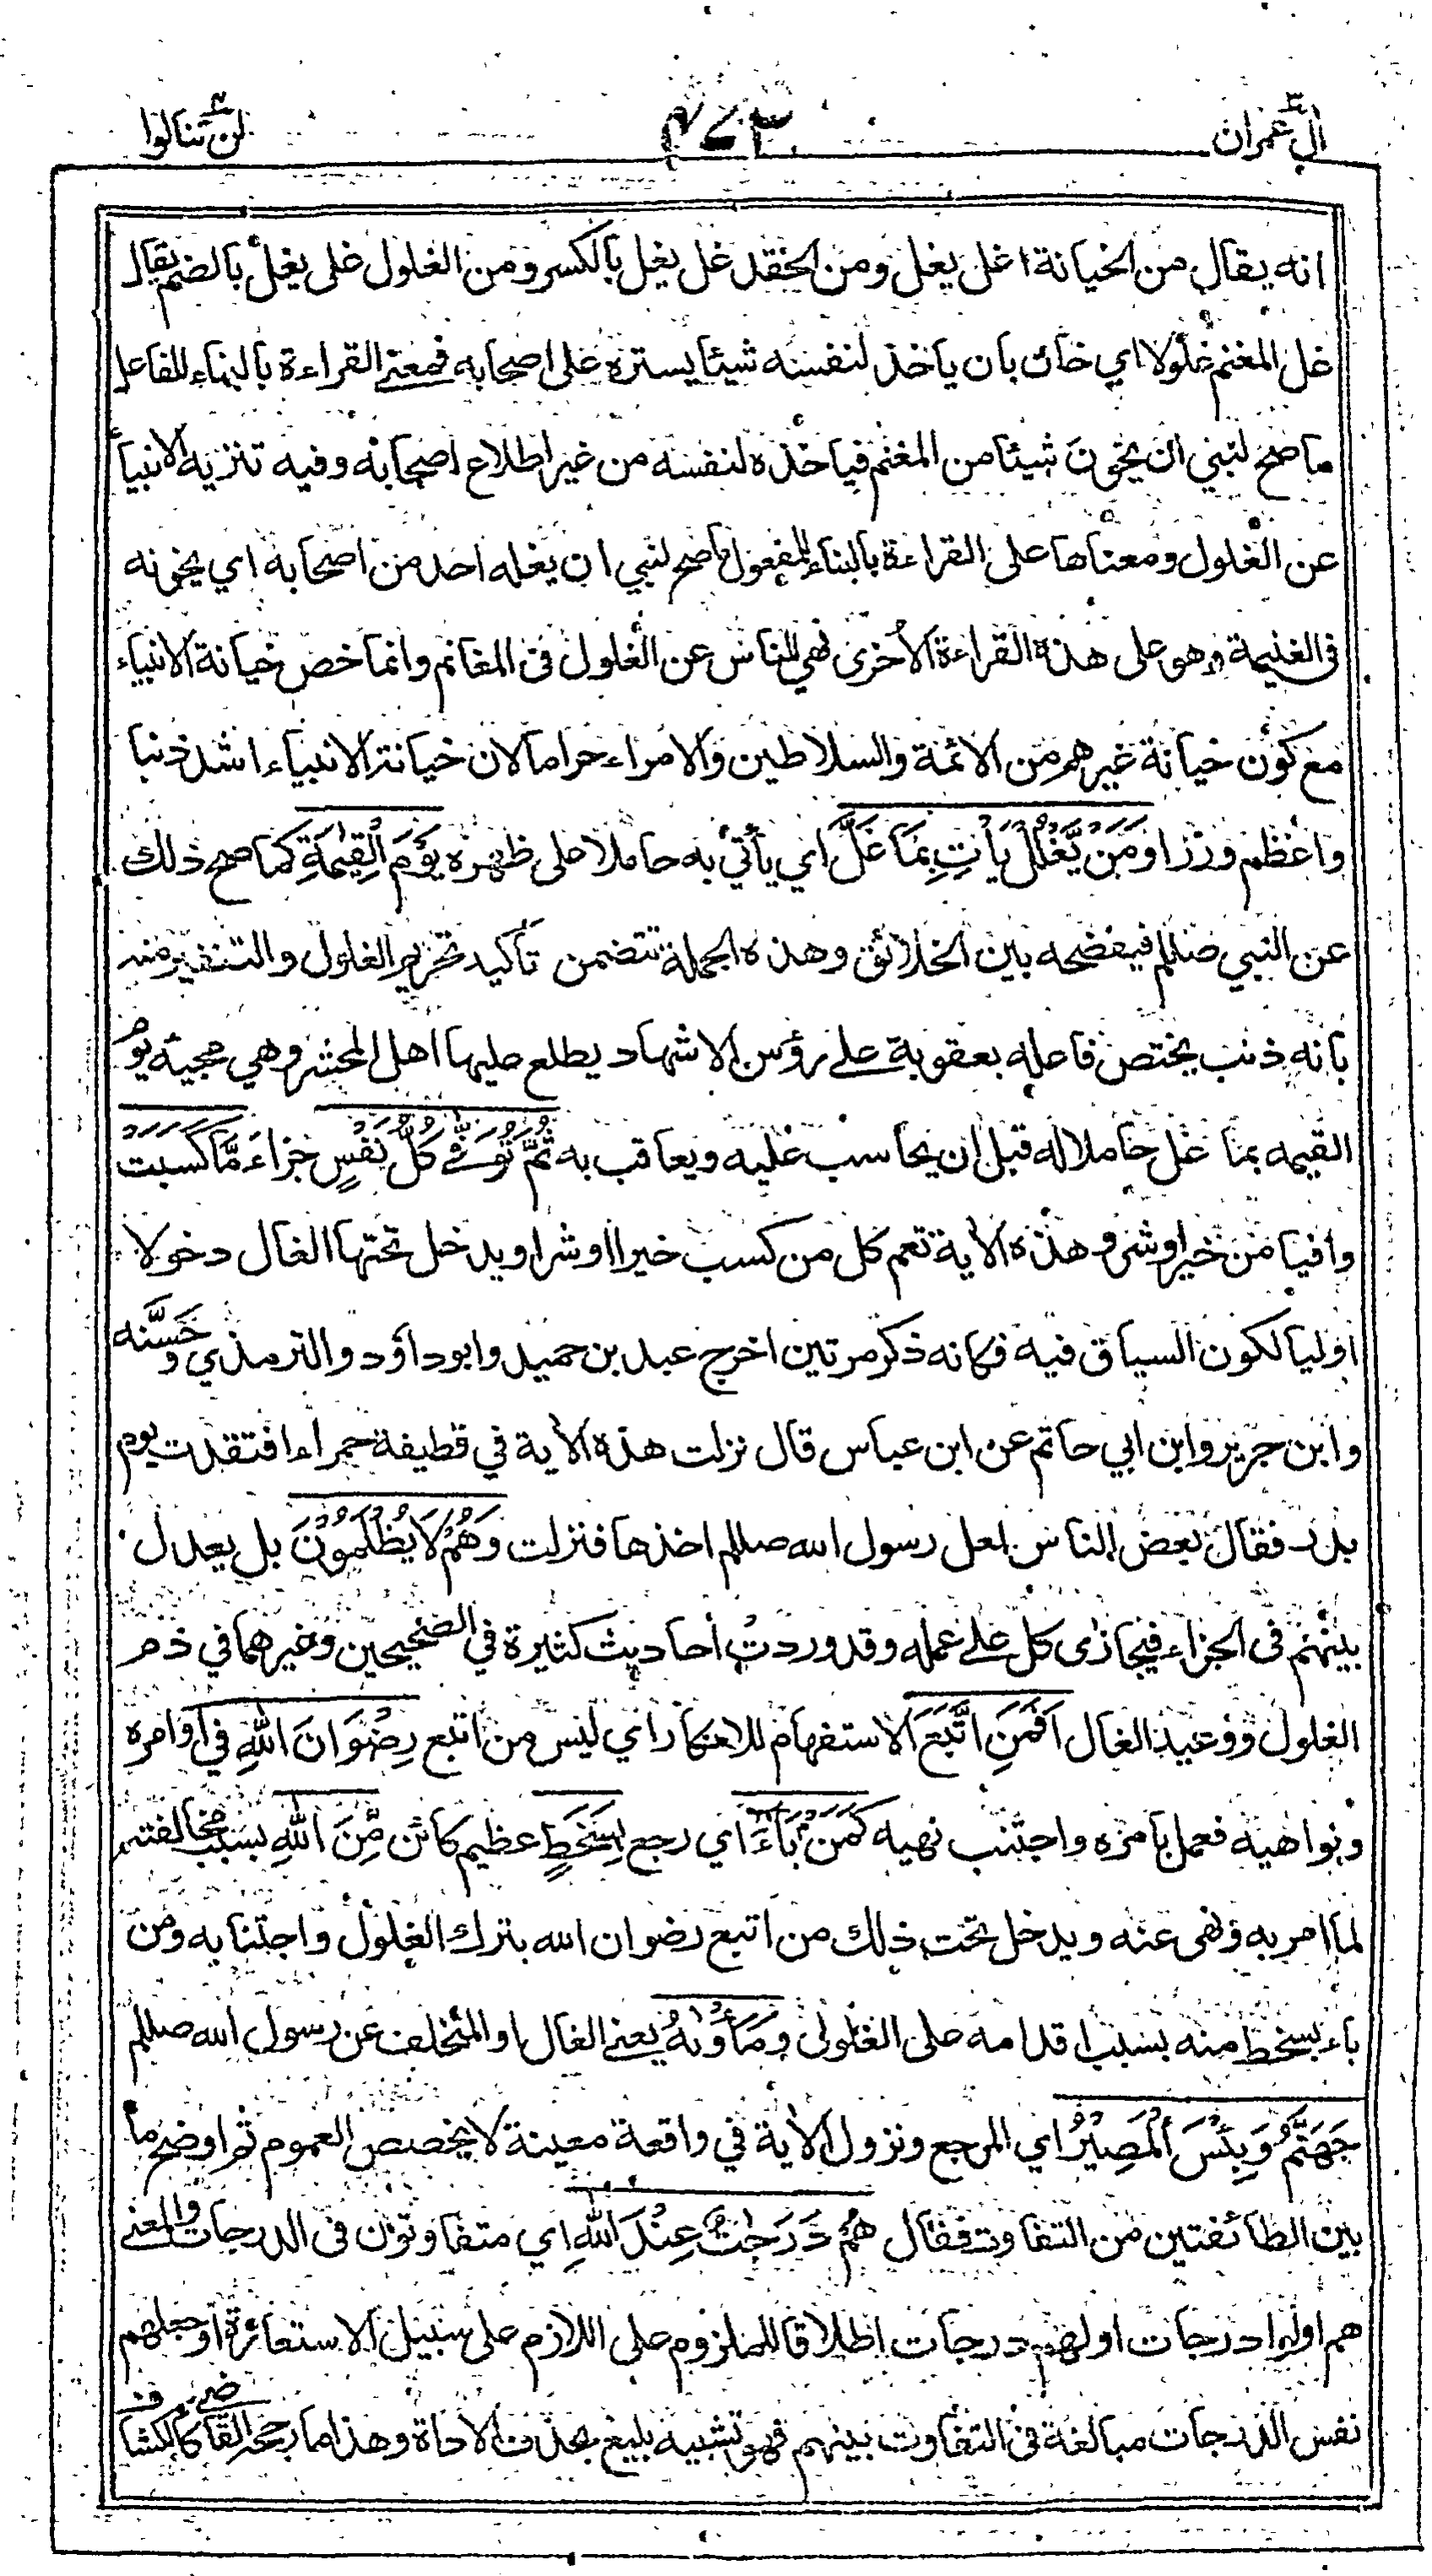 اٰل عمران
لن تنالوا
انه يقال من الخيانة اغل يغل ومن الحقد غل يغل بالكسر ومن الغلول غل يغل بالضم يقال
غل المغنم غلولا اي خان بان ياخذ لنفسه شيئا يستره على اصحابه فمعنى القراءة بالبناء للفاعل
ما صح لنبي ان يخون شيئا من المغنم فياخذه لنفسه من غير اطلاع اصحابه وفيه تنزيه الانبياء
عن الغلول ومعناها على القراءة بالبناء للمفعول ما صح لنبي ان يغله احد من اصحابه اي يخونه
في الغنيمة وهو على هذه القراءة الأخرى نهي للناس عن الغلول في المغانم وانما خص خيانة الانبياء
مع كون خيانة غيرهم من الائمة والسلاطين والامراء حراما لان خيانة الانبياء اشد ذنبا
واعظم وزرا وَمَنْ يَّغْلُلْ يَأْتِ بِمَا غَلَّ اي يأتي به حاملا على ظهره يَوْمَ الْقِيٰمَةِ كما صح ذلك
عن النبي صللم فيفضحه بين الخلائق وهذه الجملة تتضمن تأكيد تحريم الغلول والتنفير منه
بانه ذنب يختص فاعله بعقوبة على رؤس الاشهاد يطلع عليها اهل المحشر وهي مجيئه يوم
القيمه بما غل حاملا له قبل ان يحاسب عليه ويعاقب به ثُمَّ تُوَفّٰى كُلُّ نَفْسٍ جزاء مَّا كَسَبَتْ
وافيا من خير او شر وهذه الاية تعم كل من كسب خيرا او شرا ويدخل تحتها الغال دخولا
اوليا لكون السياق فيه فكانه ذكر مرتين اخرج عبد بن حميد وابو داؤد والترمذي وحَسَّنه
وابن جرير وابن ابي حاتم عن ابن عباس قال نزلت هذه الاية في قطيفة حمراء افتقدت يوم
بدر فقال بعض الناس لعل رسول الله صللم اخذها فنزلت وَهُمْ لَا يُظْلَمُوْنَ بل يعدل
بينهم في الجزاء فيجازى كل على عمله وقد وردت أحاديث كثيرة في الصحيحين وغيرهما في ذم
الغلول ووعيد الغال اَفَمَنِ اتَّبَعَ الاستفهام للانكار اي ليس من اتبع رِضْوَانَ اللهِ في اوامره
ونواهيه فعمل بامره واجتنب نهيه كَمَنْ بَآءَ اي رجع بِسَخَطٍ عظيم كائن مِّنَ اللهِ بسبب مخالفته
لما امر به ونهى عنه ويدخل تحت ذلك من اتبع رضوان الله بترك الغلول واجتنابه ومن
باء بسخط منه بسبب اقدامه على الغلول وَمَأْوٰىهُ يعني الغال او المتخلف عن رسول الله صللم
جَهَنَّمُ وَبِئْسَ الْمَصِيْرُ اي المرجع ونزول الاية في واقعة معينة لا يخصص العموم ثم اوضح ما
بين الطائفتين من التفاوت فقال هُمْ دَرَجٰتٌ عِنْدَ اللهِ اي متفاوتون في الدرجات والمعنى
هم اولوا درجات او لهم درجات اطلاقا للملزوم على اللازم على سبيل الاستعارة او جعلهم
نفس الدرجات مبالغة في التفاوت بينهم فهو تشبيه بليغ بحذف الاداة وهذا ما رجحه القاضي كالكشاف